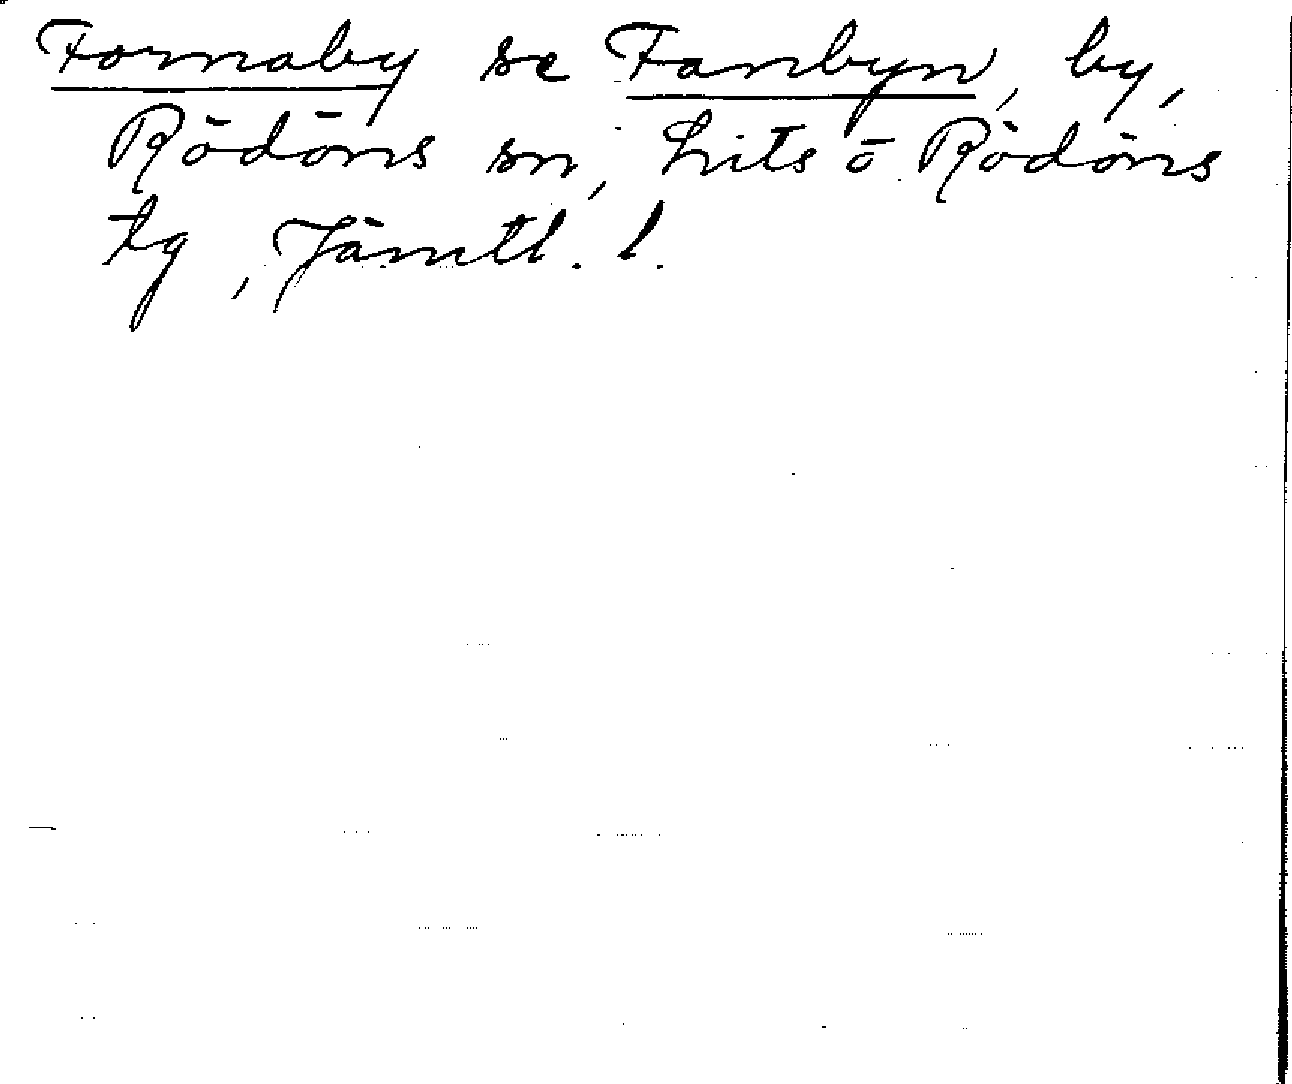 Fornaby se Fanbyn, by,
Rödöns sn, Lits o Rödöns
tg, Jämtl. l.